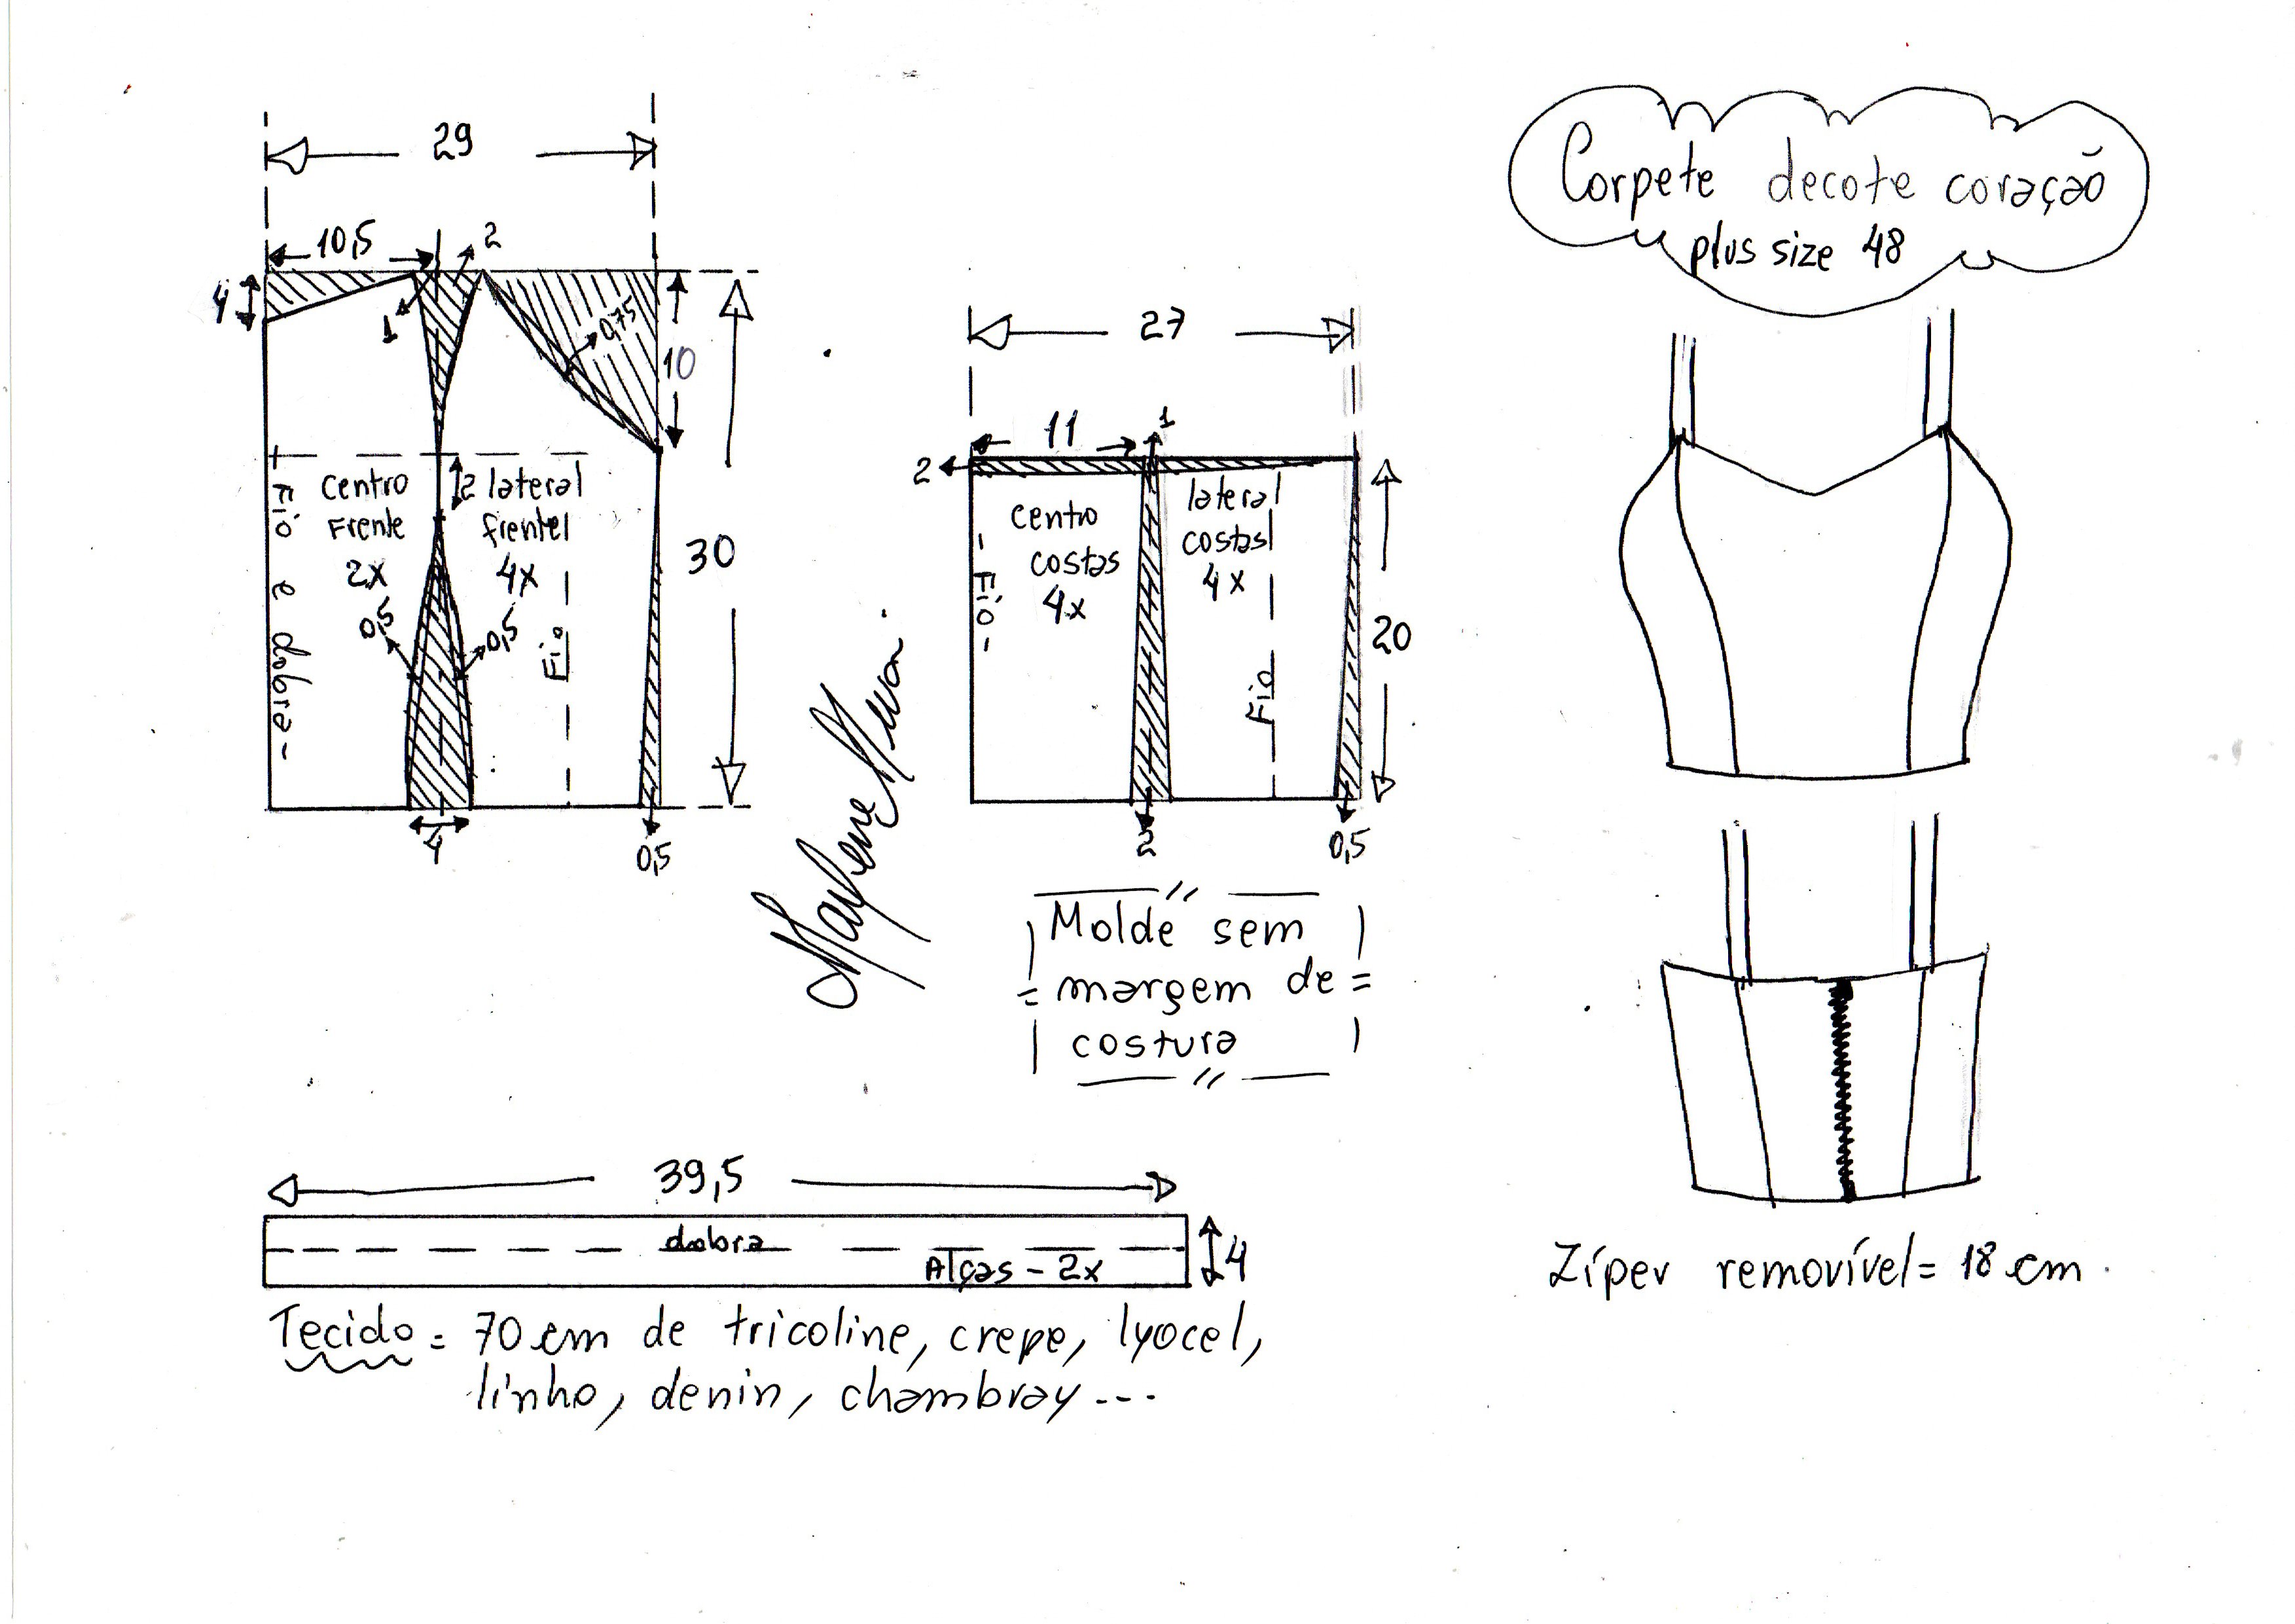 Corpete decote coração
plus size 48
29
10,5
2
4
1
0,75
10
Centro
Frente
2x
2 lateral
frente
4x
Fio e dobra
0,5
0,5
Fio
30
4
0,5
27
11
1
2
Centro
costas
4x
lateral
costas
4x
Fio
Fio
20
2
0,5
Marlene Mukai
Molde sem
margem de
costura
39,5
dobra
Alças - 2x
4
Tecido = 70 cm de tricoline, crepe, lyocel,
linho, denin, chambray ...
Zíper removível = 18 cm.